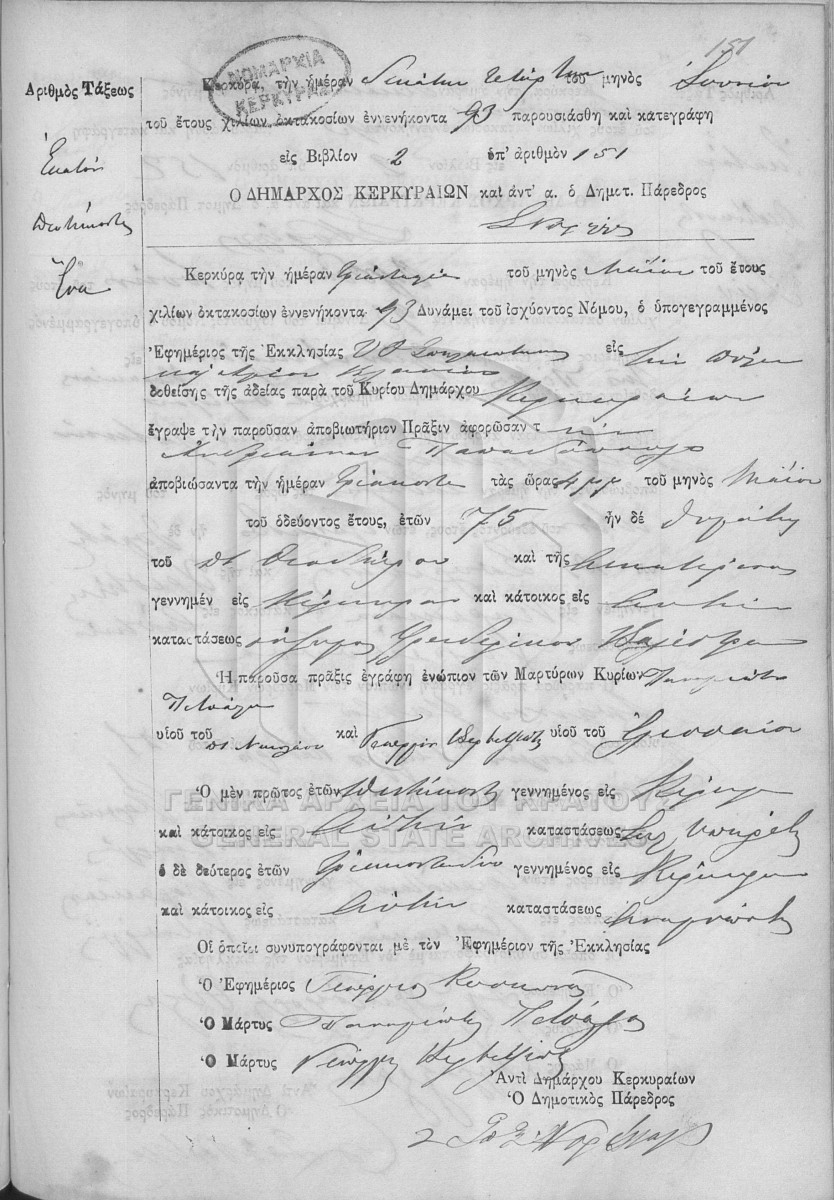 151
ΝΟΜΑΡΧΙΑ ΚΕΡΚΥΡΑΣ
Ἀριθμὸς Τάξεως
Κερκύρα, τὴν ἡμέραν Δεκάτην τετάρτην τοῦ μηνὸς Ἰουνίου
τοῦ ἔτους χιλίων ὀκτακοσίων ἐννενήκοντα 93 παρουσιάσθη καὶ κατεγράφη
Ἑκατὸν
εἰς Βιβλίον 2 ὑπ' ἀριθμὸν 151
Ο ΔΗΜΑΡΧΟΣ ΚΕΡΚΥΡΑΙΩΝ καὶ ἀντ' α. ὁ Δημοτ. Πάρεδρος
πεντήκοντα
Ἕνα
Κερκύρα τὴν ἡμέραν τοῦ μηνὸς Μαΐου τοῦ ἔτους
χιλίων ὀκτακοσίων ἐννενήκοντα 93 Δυνάμει τοῦ ἰσχύοντος Νόμου, ὁ ὑπογεγραμμένος
Ἐφημέριος τῆς Ἐκκλησίας εἰς τὴν πόλιν
δοθείσης τῆς ἀδείας παρὰ τοῦ Κυρίου Δημάρχου Κερκυραίων
ἔγραψε τὴν παροῦσαν ἀποβιωτήριον Πρᾶξιν ἀφορῶσαν τὴν
Παπαδόπουλο
ἀποβιώσαντα τὴν ἡμέραν τριακοστὴν τὰς ὥρας 4 μμ τοῦ μηνὸς Μαΐου
τοῦ ὁδεύοντος ἔτους, ἐτῶν 75 ἦν δέ θυγάτηρ
τοῦ Θεοδώρου καὶ τῆς Αἰκατερίνης
γεννημέν εἰς Κέρκυραν καὶ κάτοικος εἰς Αὐτὴν
καταστάσεως
Ἡ παροῦσα πρᾶξις ἐγράφη ἐνώπιον τῶν Μαρτύρων Κυρίων Παναγιώτη
Πετσάλη
υἱοῦ τοῦ Νικολάου καὶ Γεωργίου υἱοῦ τοῦ
Ὁ μὲν πρῶτος ἐτῶν πεντήκοντα γεννημένος εἰς Κέρκυραν
ΓΕΝΙΚΑ ΑΡΧΕΙΑ ΤΟΥ ΚΡΑΤΟΥΣ
καὶ κάτοικος εἰς Αὐτὴν καταστάσεως
GENERAL STATE ARCHIVES
ὁ δὲ δεύτερος ἐτῶν τριακονταδύο γεννημένος εἰς Κέρκυραν
καὶ κάτοικος εἰς Αὐτὴν καταστάσεως ἀναγνώστης
Οἱ ὁποῖοι συνυπογράφονται μὲ τὸν Ἐφημέριον τῆς Ἐκκλησίας
Ὁ Ἐφημέριος Γεώργιος
Ὁ Μάρτυς Παναγιώτης Πετσάλης
Ὁ Μάρτυς Γεώργιος
Ἀντὶ Δημάρχου Κερκυραίων
Ὁ Δημοτικὸς Πάρεδρος